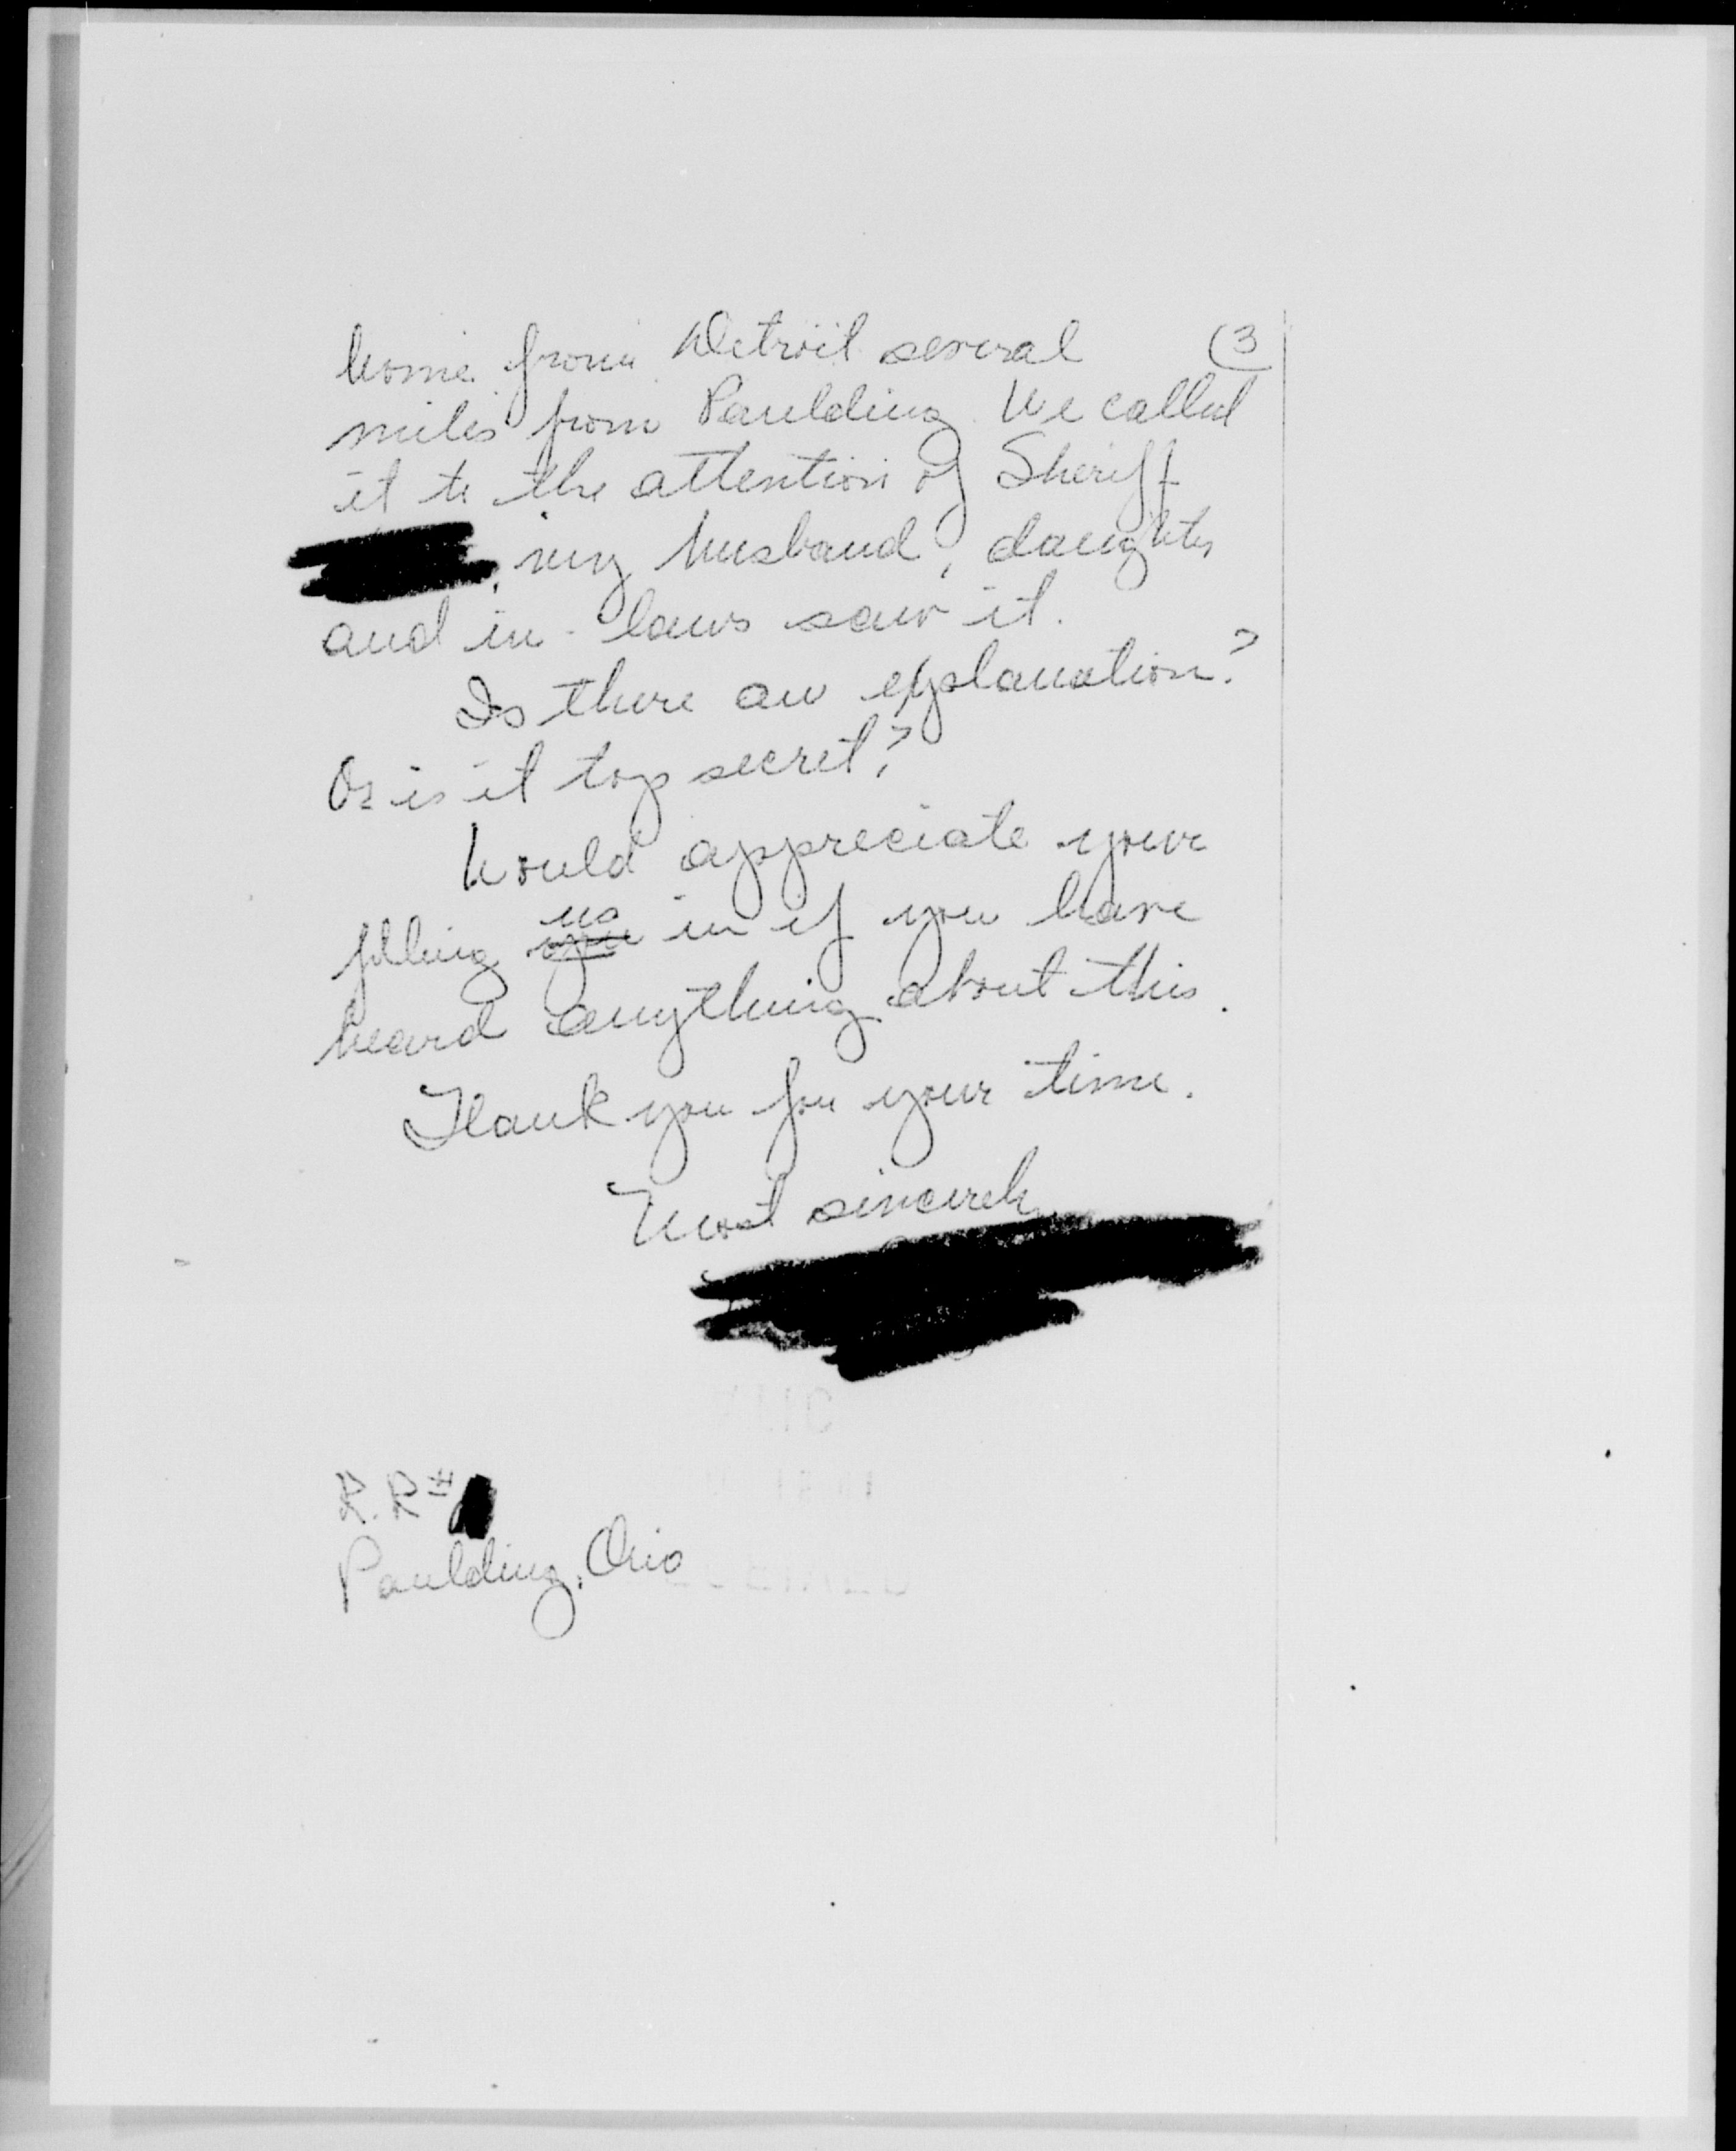 home from Detroit several (3
miles from Paulding. We called
it to the attention of Sheriff
, my husband, daughter
and in-laws saw it.
Is there an explanation?
Or is it top secret?
Would appreciate your
us
filling you in if you have
heard anything about this.
Thank you for your time.
Most sincerely
R.R #
Paulding, Ohio